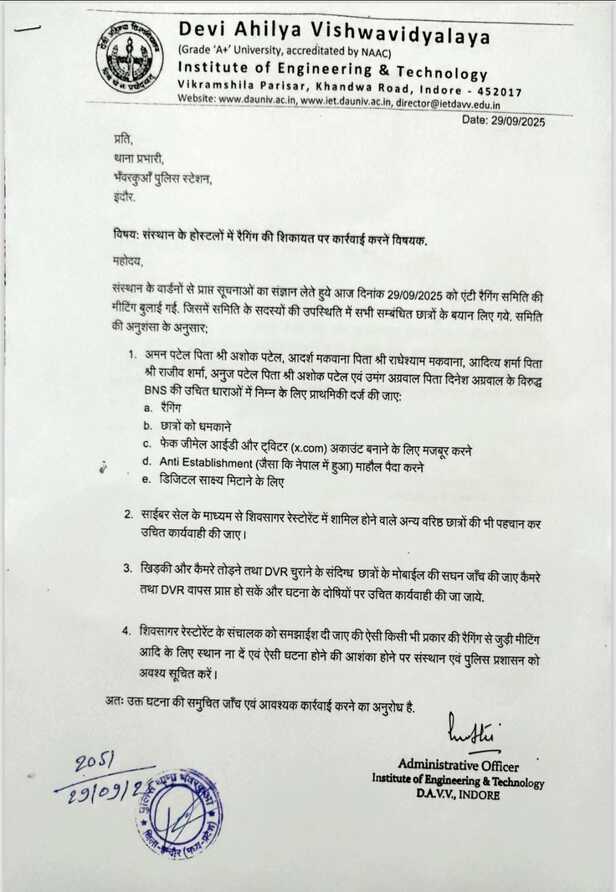 Devi Ahilya Vishwavidyalaya
(Grade 'A+' University, accreditated by NAAC)
Institute of Engineering & Technology
Vikramshila Parisar, Khandwa Road, Indore - 452017
Website: www.dauniv.ac.in, www.iet.dauniv.ac.in, director@ietdavv.edu.in
Date: 29/09/2025
प्रति,
थाना प्रभारी,
भँवरकुआँ पुलिस स्टेशन,
इंदौर.
विषय: संस्थान के होस्टलों में रैगिंग की शिकायत पर कार्रवाई करनें विषयक.
महोदय,
संस्थान के वार्डनों से प्राप्त सूचनाओं का संज्ञान लेते हुये आज दिनांक 29/09/2025 को एंटी रैगिंग समिति की
मीटिंग बुलाई गई. जिसमें समिति के सदस्यों की उपस्थिति में सभी सम्बंधित छात्रों के बयान लिए गये. समिति
की अनुशंसा के अनुसार;
1. अमन पटेल पिता श्री अशोक पटेल, आदर्श मकवाना पिता श्री राधेश्याम मकवाना, आदित्य शर्मा पिता
श्री राजीव शर्मा, अनुज पटेल पिता श्री अशोक पटेल एवं उमंग अग्रवाल पिता दिनेश अग्रवाल के विरुद्ध
BNS की उचित धाराओं में निम्न के लिए प्राथमिकी दर्ज की जाए:
a. रैगिंग
b. छात्रों को धमकाने
c. फेक जीमेल आईडी और ट्विटर (x.com) अकाउंट बनाने के लिए मजबूर करने
d. Anti Establishment (जैसा कि नेपाल में हुआ) माहौल पैदा करने
e. डिजिटल साक्ष्य मिटाने के लिए
2. साईबर सेल के माध्यम से शिवसागर रेस्टोरेंट में शामिल होने वाले अन्य वरिष्ठ छात्रों की भी पहचान कर
उचित कार्यवाही की जाए।
3. खिड़की और कैमरे तोड़ने तथा DVR चुराने के संदिग्ध छात्रों के मोबाईल की सघन जाँच की जाए कैमरे
तथा DVR वापस प्राप्त हो सकें और घटना के दोषियों पर उचित कार्यवाही की जा जाये.
4. शिवसागर रेस्टोरेंट के संचालक को समझाईश दी जाए की ऐसी किसी भी प्रकार की रैगिंग से जुड़ी मीटिंग
आदि के लिए स्थान ना दें एवं ऐसी घटना होने की आशंका होने पर संस्थान एवं पुलिस प्रशासन को
अवश्य सूचित करें।
अतः उक्त घटना की समुचित जाँच एवं आवश्यक कार्रवाई करने का अनुरोध है.
Administrative Officer
Institute of Engineering & Technology
D.A.V.V., INDORE
2051
29/09/2